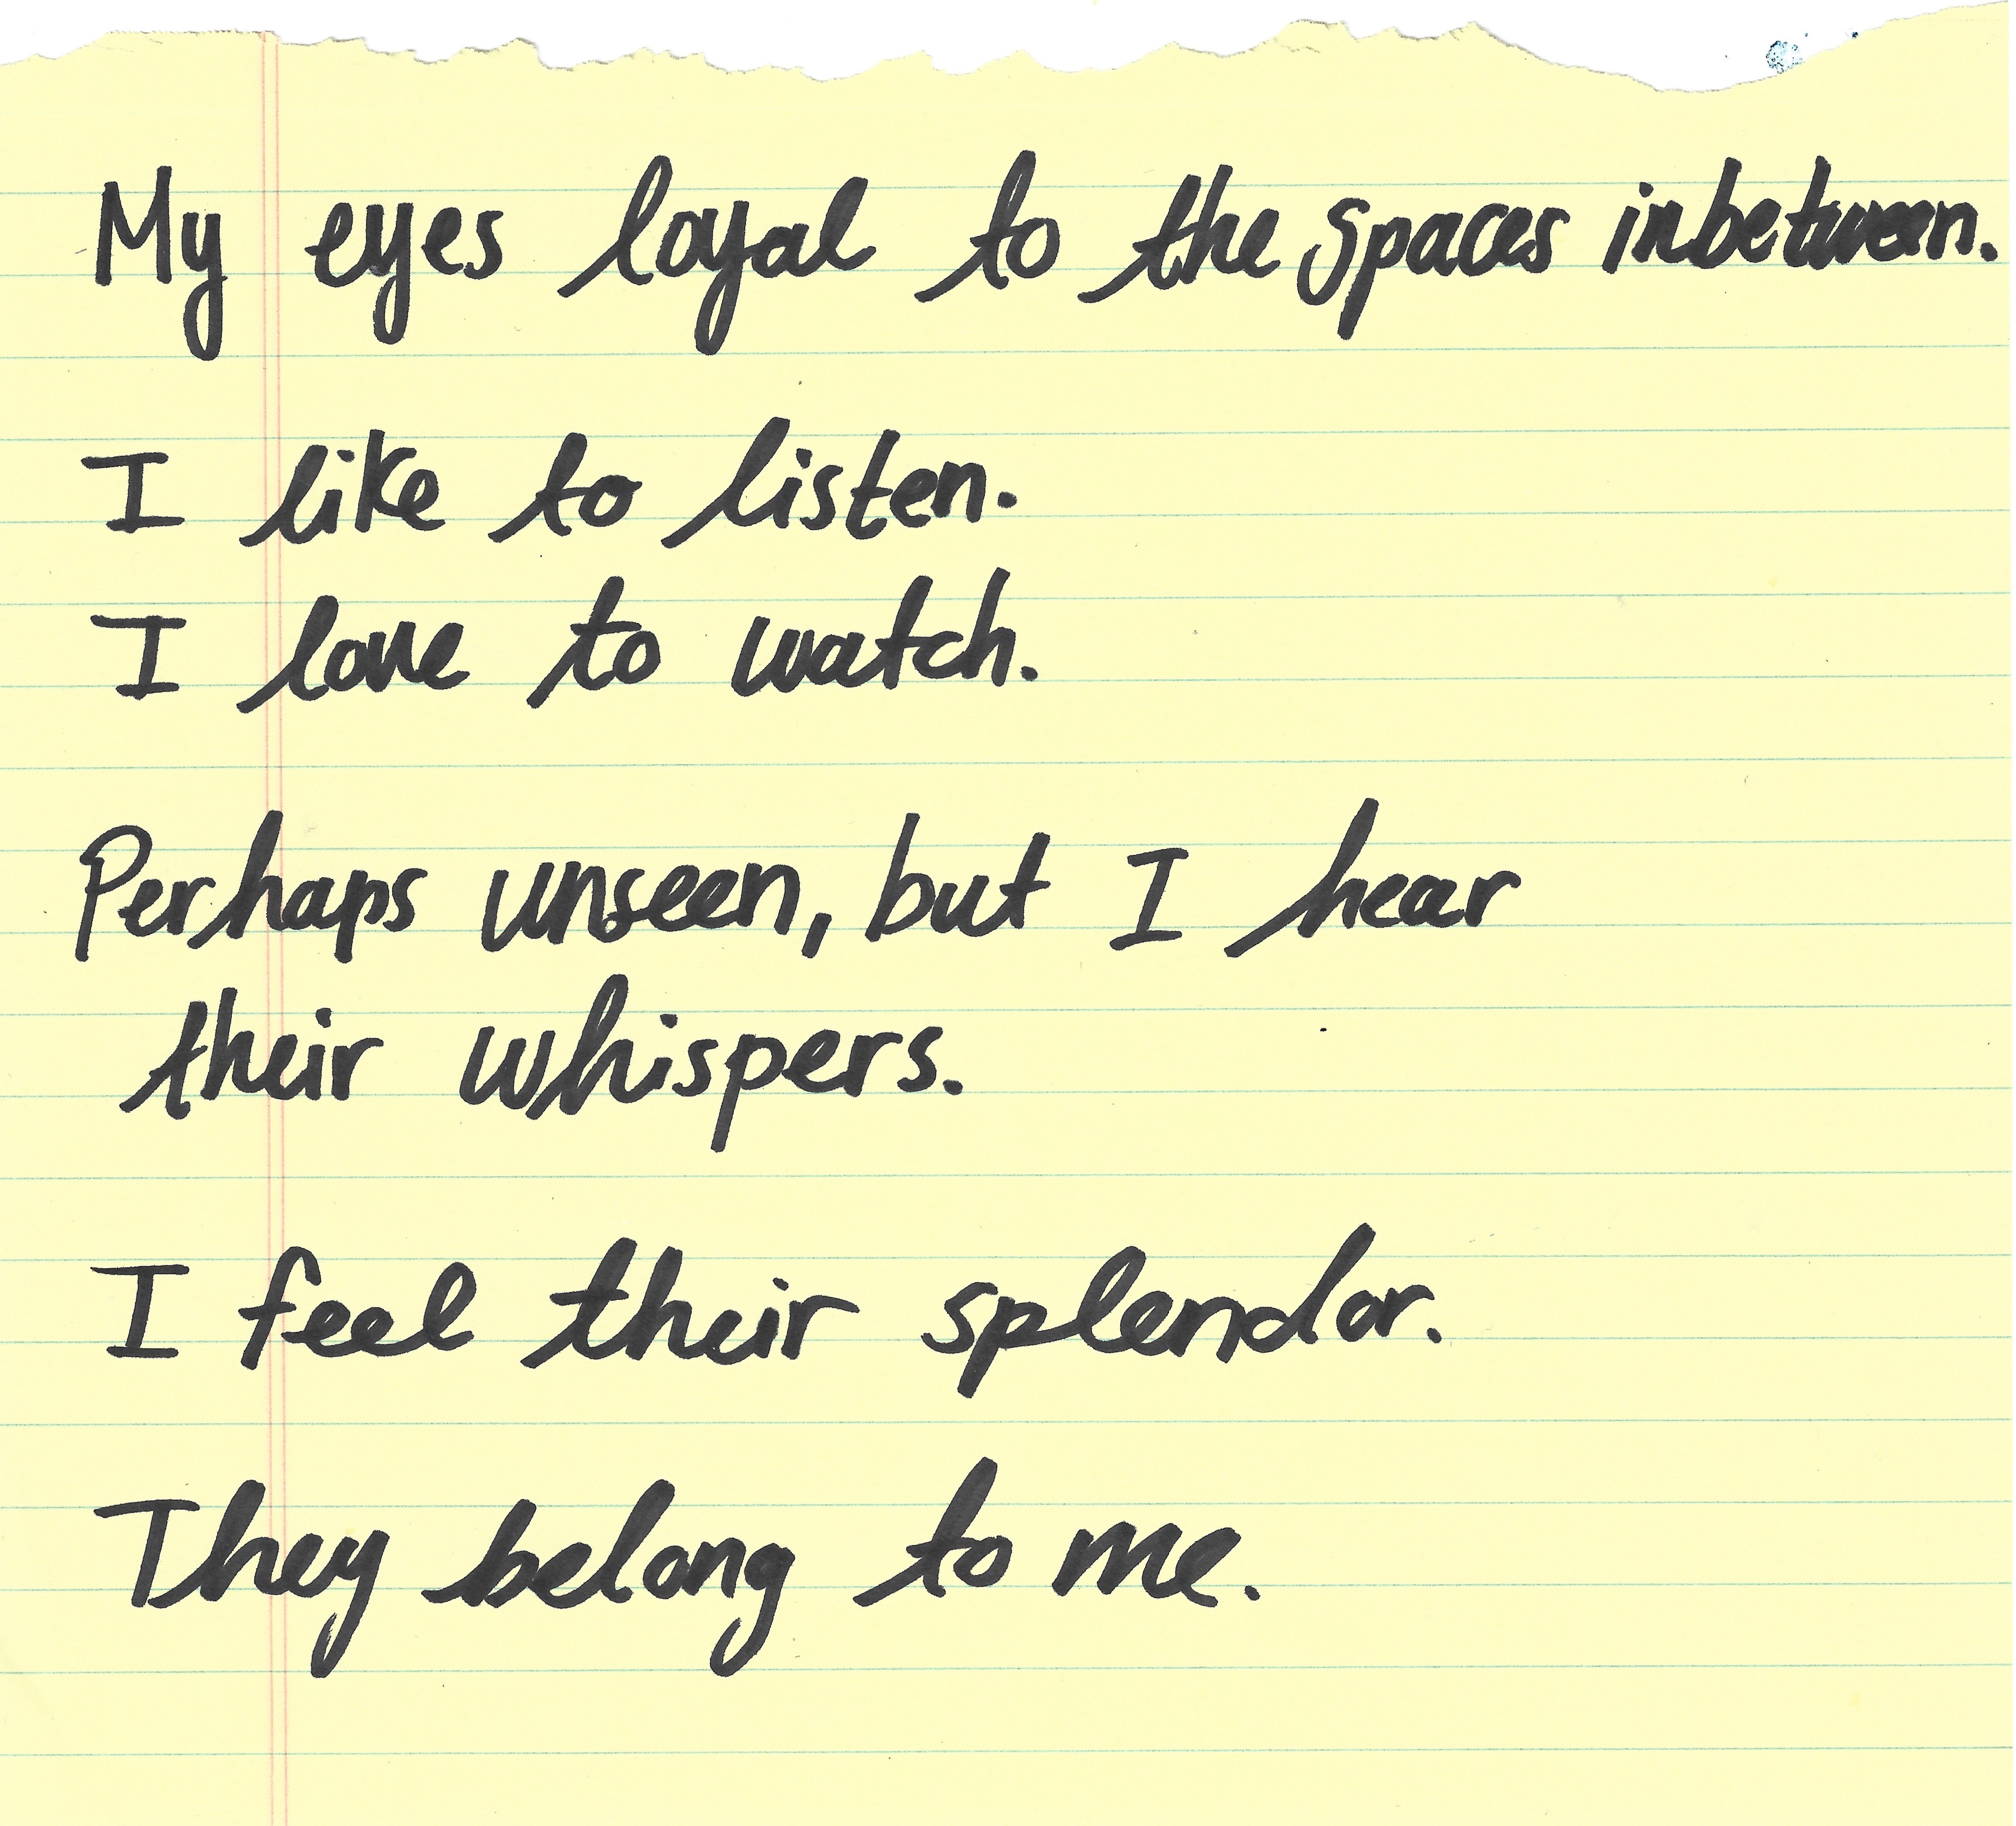 My eyes loyal to the spaces inbetween.
I like to listen.
I love to watch.
Perhaps unseen, but I hear
their whispers.
I feel their splendor.
They belong to me.